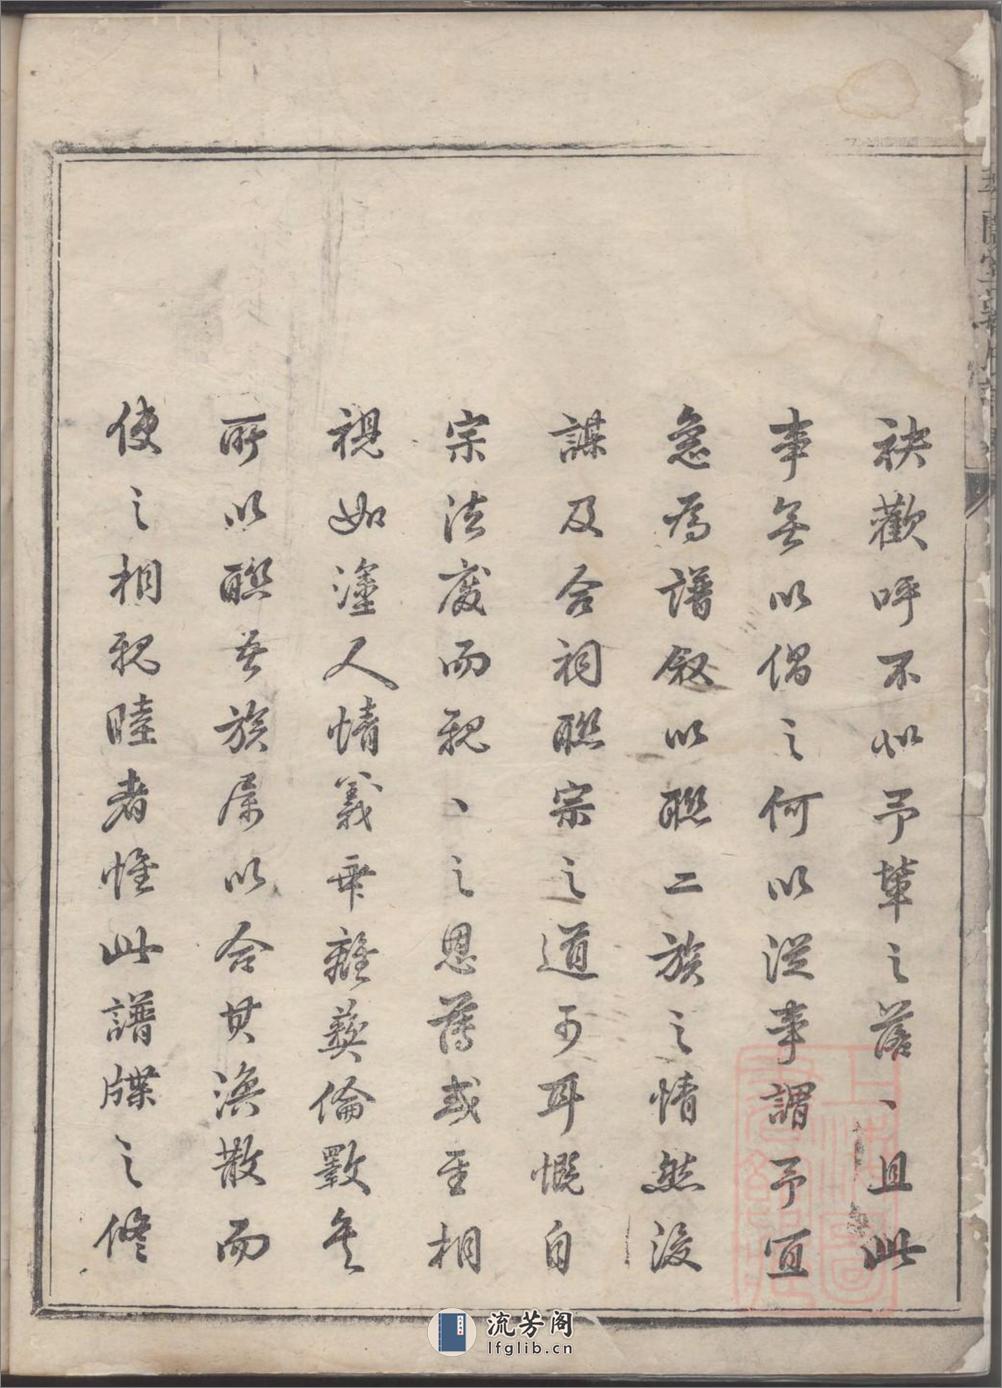 袂歡呼不似予輩之落、且此
事無以倡之何以從事謂予宜
急為譜敘以聯二族之情然後
謀及合祠聯宗之道可耳慨自
宗法廢而親、之恩薄或至相
視如塗人情義乖離彝倫斁矣
所以聯族屬以合其渙散而
使之相親睦者惟此譜牒之修
流芳阁
lfglib.cn